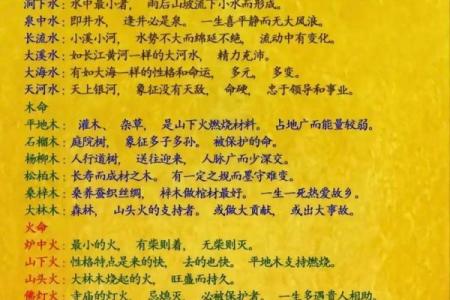 涧下水：水中最小者，雨后山坡流下小水而形成。
泉中水：即井水，逢井必是泉。一生喜平静而无大风浪。
长流水：小溪小河，水势不大而绵延不绝，流动中有变化。
大溪水：如长江黄河一样的大河水，精力充沛。
大海水：有如大海一样的性格和命运，多元，多变。
天河水：天上银河，象征没有天敌，命硬，忠于领导和事业。
木命
平地木：灌木、杂草，是山下火燃烧材料。占地广而能量较弱。
石榴木：庭院树，象征多子多孙。被保护的命。
杨柳木：人行道树，送往迎来，人脉广而少深交。
松柏木：长寿而成材之木。有一定之规而墨守难变。
桑梓木：桑养蚕织丝绸，梓木做棺材最好。一生一死热爱故乡。
大林木：森林，山头火的支持者。或做大贡献，或出大事故。
火命
炉中火：最小的火，有柴则着，无柴则灭。
山下火：性格特点是来的快，去的也快。平地木支持燃烧。
山头火：大林木烧起的火，旺盛而持久。
佛灯火：寺庙的灯火，忌熄灭，必被保护者。一生多遇贵人相助。